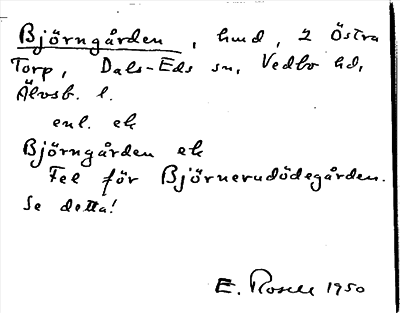 Björngården, hmd, 2 Östra
Torp, Dals-Eds sn, Vedbo hd,
Älvsb. l.
enl. ek
Björngården ek
Fel för Björnerudödegården.
Se detta!
E. Rosell 1950